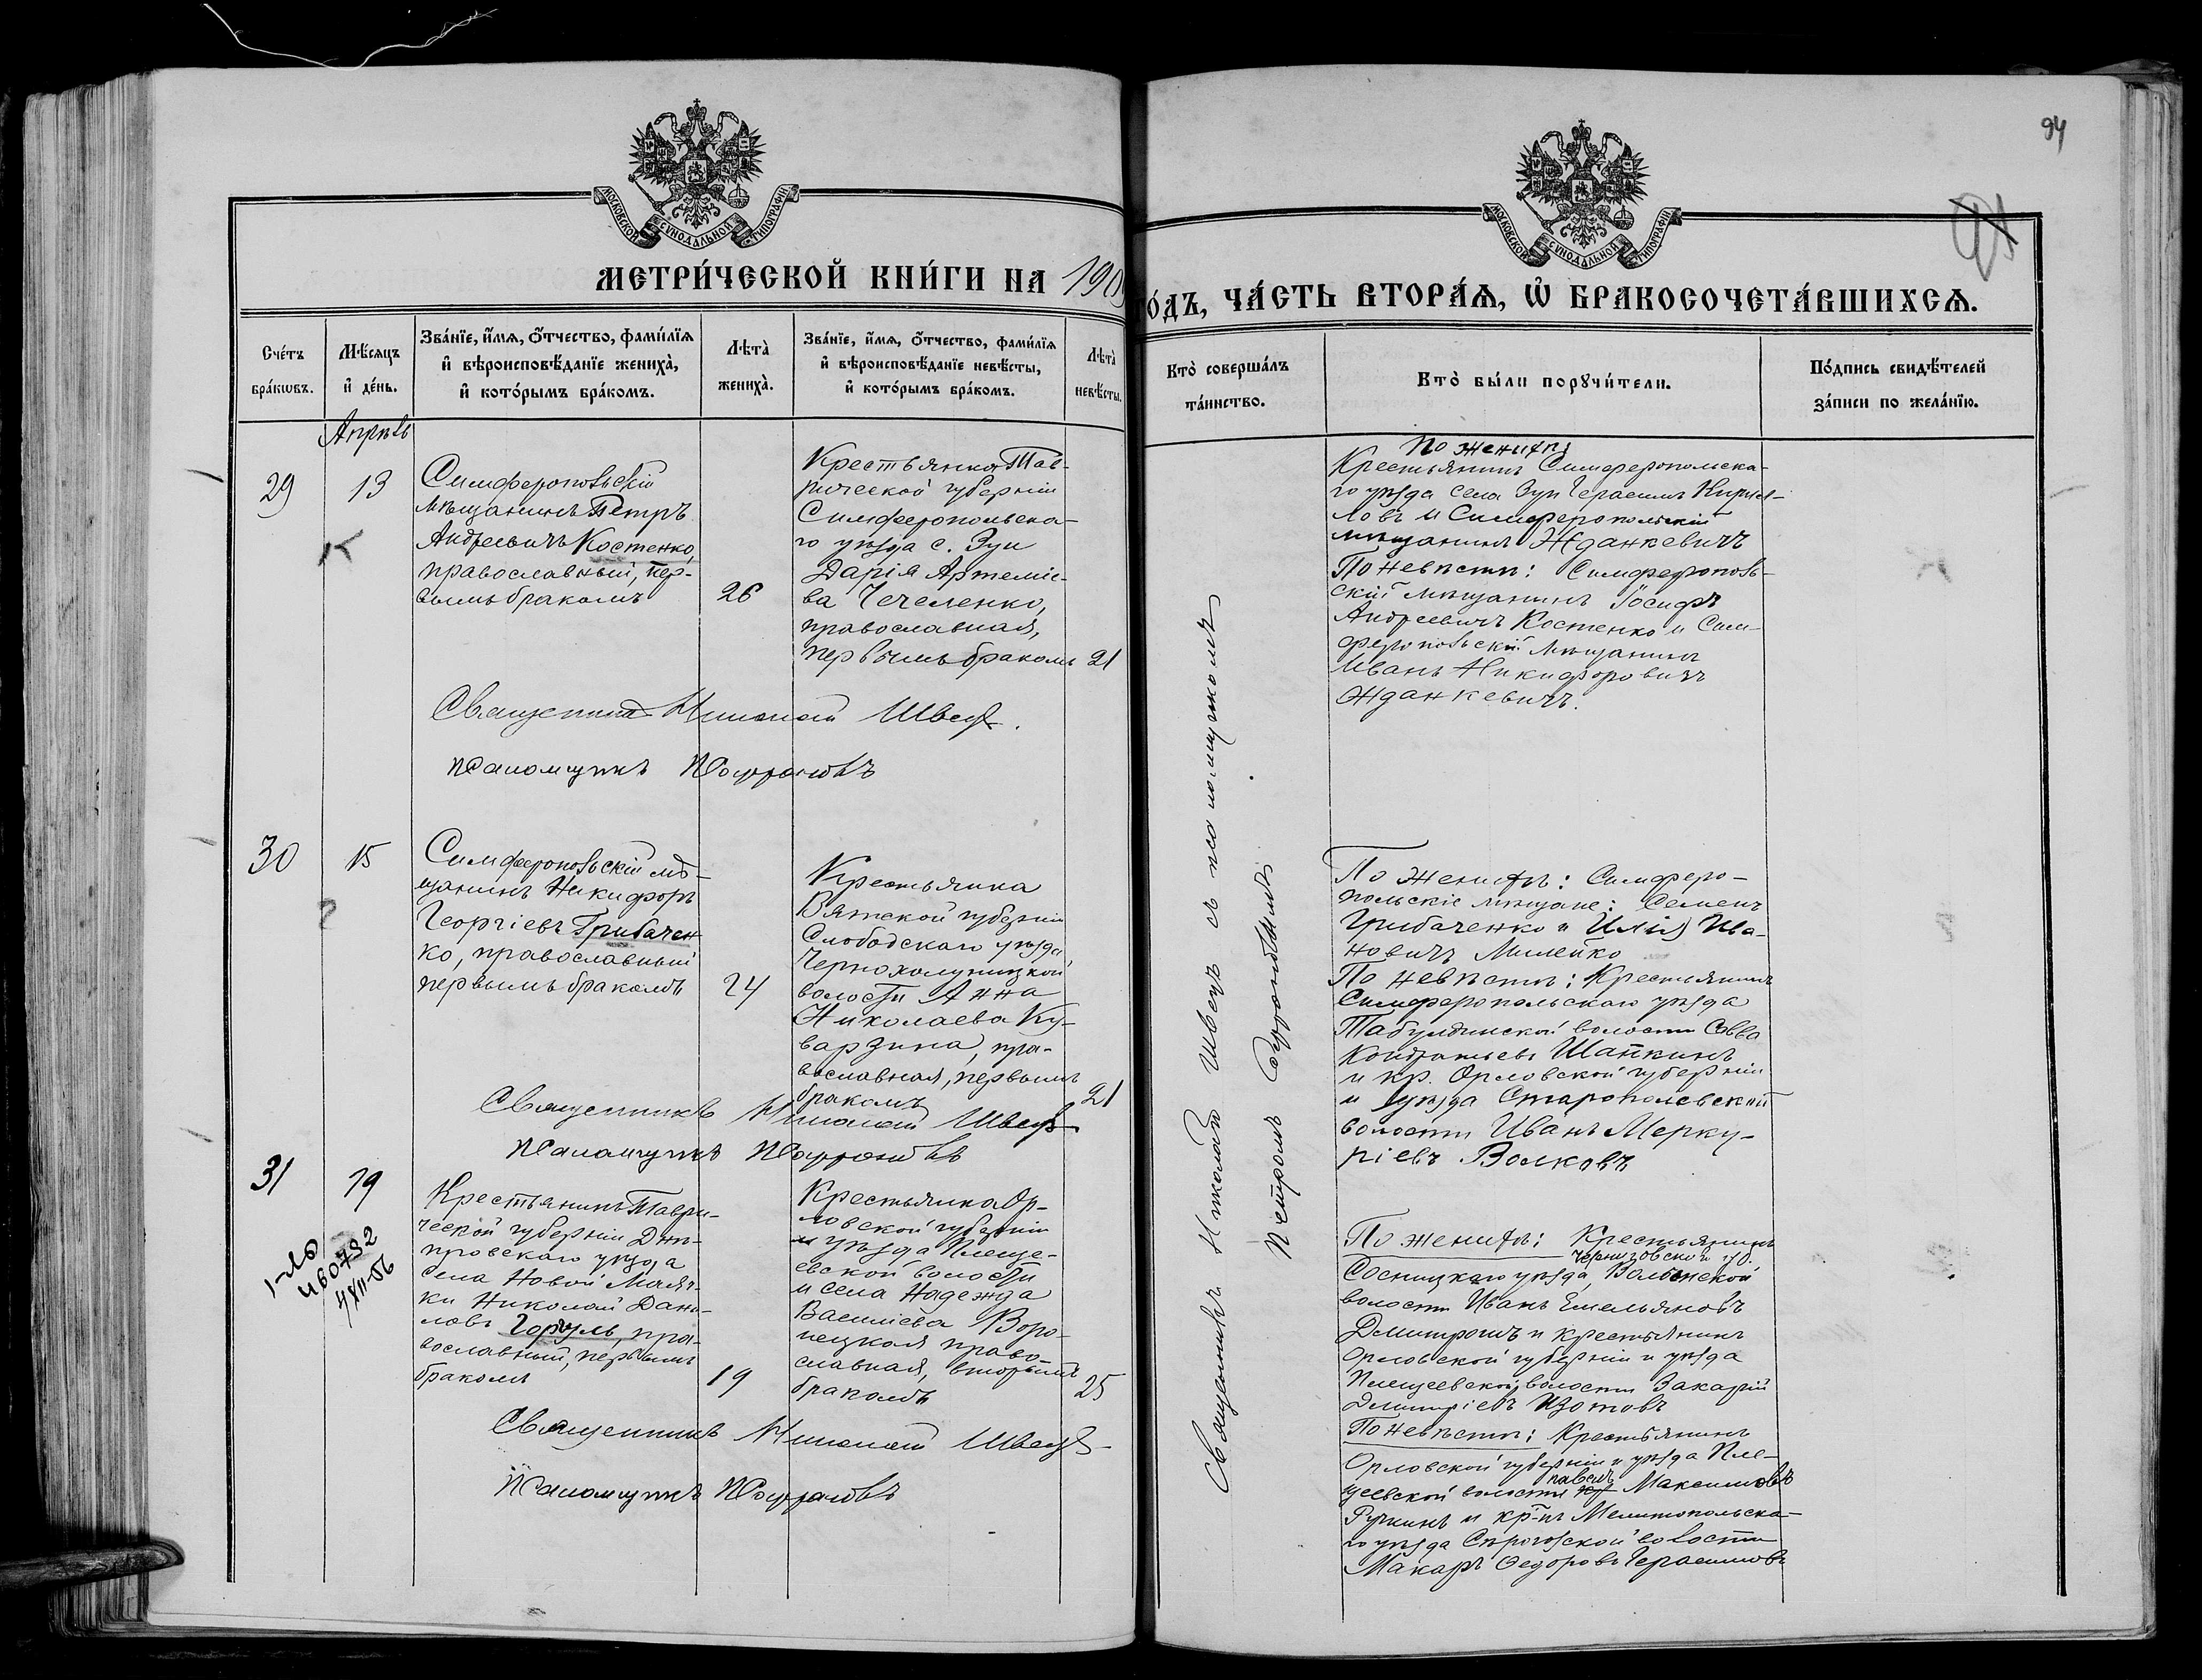 94
МОСКОВСКОЙ СУНОДАЛЬНОЙ ТИПОГРАФІИ
МОСКОВСКОЙ СУНОДАЛЬНОЙ ТИПОГРАФІИ
МЕТРИ́ЧЕСКОЙ КНИ́ГИ НА 190
ГО́ДЪ, ЧА́СТЬ ВТОРА́Ѧ, Ѡ БРАКОСОЧЕТА́ВШИХСѦ.
Сче́тъ бра́кѡвъ.
Мѣ́сяцъ и де́нь.
Зва́нїе, и́мѧ, ѻ́тчество, фами́лїѧ
и вѣроисповѣ́данїе жениха̀,
и кото́рымъ бра́комъ.
Лѣта̀ жениха̀.
Зва́нїе, и́мѧ, ѻ́тчество, фами́лїѧ
и вѣроисповѣ́данїе невѣ́сты,
и кото́рымъ бра́комъ.
Лѣта̀ невѣ́сты.
Кто̀ соверша́лъ та́инство.
Кто̀ бы́ли порꙋчи́тели.
По́дпись свидѣ́телей
за́писи по жела́нїю.
Апрѣль
29
13
Симферопольскій
мѣщанинъ Петръ
Андреевичъ Костенко,
православный, пер-
вымъ бракомъ
26
Крестьянка Тав-
рической губерніи
Симферопольска-
го уѣзда с. Зуи
Дарія Артеміе-
ва Чечеленко,
православная,
первымъ бракомъ
21
По женихѣ
Крестьянинъ Симферопольска-
го уѣзда села Зуи Герасимъ Кирил-
ловъ и Симферопольскій
мѣщанинъ Жданкевичъ
По невѣстѣ: Симферополь-
скій мѣщанинъ Іосифъ
Андреевичъ Костенко и Сим-
феропольскій мѣщанинъ
Иванъ Никифоровичъ
Жданкевичъ.
Священникъ Николай Швецъ.
Псаломщикъ
30
15
Симферопольскій мѣ-
щанинъ Никифоръ
Георгіевъ Грибачен
ко, православный
первымъ бракомъ
24
Крестьянка
Вятской губерніи
Слободскаго уѣзда
Чернохолуницкой
волости Анна
Николаева Ку-
варзина, пра-
вославная, первымъ
бракомъ
21
По женихѣ: Симферо-
польскіе мѣщане: Семенъ
Грибаченко и Илія Ива-
новичъ Милейко
По невѣстѣ: Крестьянинъ
Симферопольскаго уѣзда
Табулдинской волости Савва
Кондратьевъ Шапкинъ
и кр. Орловской губерніи
и уѣзда Старопо­левской
волости Иванъ Мерку-
ріевъ Волковъ
Священникъ Николай Швецъ
Псаломщикъ
31
19
Крестьянинъ Таври-
ческой губерніи Днѣ-
провскаго уѣзда
села Новой Маяч-
ки Николай Дани-
ловъ Горчуль, пра-
вославный, первымъ
бракомъ
19
Крестьянка Ор-
ловской губерніи
и уѣзда Плеще-
евской волости
и села Надежда
Василіева Воро-
нецкая право-
славная, вторымъ
бракомъ
25
По женихѣ: Крестьянинъ
Черниговской губ.
Сосницкаго уѣзда, Волынской
волости Иванъ Емельяновъ
Дмитрогиъ и крестьянинъ
Орловской губерніи и уѣзда
Плещеевской волости Захарій
Димитріевъ Изотовъ
По невѣстѣ: Крестьянинъ
Орловской губерніи и уѣзда Пле-
павелъ
щеевской волости Максимовъ
Ручкинъ и кр-нъ Мелитопольска-
го уѣзда Сѣрогозской волости
Макаръ Ѳедоровъ Герасимовъ
Священникъ Николай Швецъ
Псаломщикъ
Священникъ Николай Швецъ съ псаломщикомъ
Петромъ